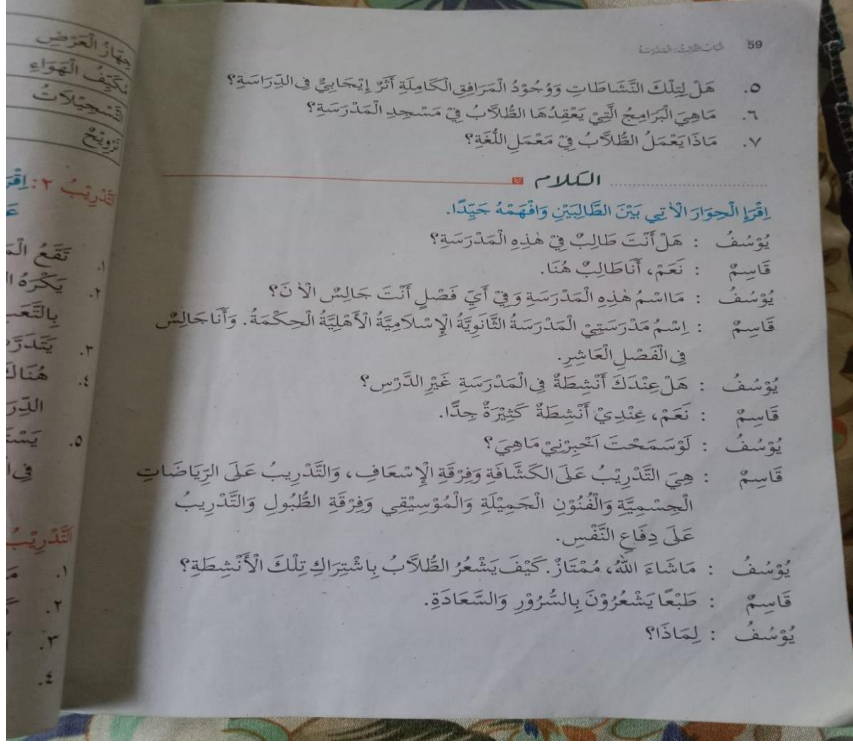 59 الباب الثالث: المدرسة
٥. هَلْ لِتِلْكَ النَّشَاطَاتِ وَوُجُوْدُ الْمَرَافِقِ الْكَامِلَةِ أَثَرٌ إِيْجَابِيٌّ فِى الدِّرَاسَةِ؟
٦. مَاهِيَ الْبَرَامِجُ الَّتِيْ يَعْقِدُهَا الطُّلَّابُ فِيْ مَسْجِدِ الْمَدْرَسَةِ؟
٧. مَاذَا يَعْمَلُ الطُّلَّابُ فِيْ مَعْمَلِ اللُّغَةِ؟
الكلام
اِقْرَإِ الْحِوَارَ الْاٰتِي بَيْنَ الطَّالِبَيْنِ وَافْهَمْهُ جَيِّدًا.
يُوْسُفُ : هَلْ أَنْتَ طَالِبٌ فِيْ هٰذِهِ الْمَدْرَسَةِ؟
قَاسِمٌ : نَعَمْ، أَنَا طَالِبٌ هُنَا.
يُوْسُفُ : مَا اسْمُ هٰذِهِ الْمَدْرَسَةِ وَفِيْ أَيِّ فَصْلٍ أَنْتَ جَالِسٌ الْاٰنَ؟
قَاسِمٌ : اِسْمُ مَدْرَسَتِيْ الْمَدْرَسَةُ الثَّانَوِيَّةُ الْإِسْلَامِيَّةُ الْأَهْلِيَّةُ الْحِكْمَةُ. وَأَنَا جَالِسٌ
فِى الْفَصْلِ الْعَاشِرِ.
يُوْسُفُ : هَلْ عِنْدَكَ أَنْشِطَةٌ فِى الْمَدْرَسَةِ غَيْرِ الدَّرْسِ؟
قَاسِمٌ : نَعَمْ، عِنْدِيْ أَنْشِطَةٌ كَثِيْرَةٌ جِدًّا.
يُوْسُفُ : لَوْ سَمَحْتَ اَخْبِرْنِيْ مَاهِيَ؟
قَاسِمٌ : هِيَ التَّدْرِيْبُ عَلَى الكَشَّافَةِ وَفِرْقَةِ الْإِسْعَافِ، وَالتَّدْرِيبُ عَلَى الرِّيَاضَاتِ
الْجِسْمِيَّةِ وَالْفُنُوْنِ الْجَمِيْلَةِ وَالْمُوْسِيْقِي وَفِرْقَةِ الطُّبُولِ وَالتَّدْرِيبُ
عَلَى دِفَاعِ النَّفْسِ.
يُوْسُفُ : مَاشَاءَ اللّٰهُ، مُمْتَازٌ. كَيْفَ يَشْعُرُ الطُّلَّابُ بِاشْتِرَاكِ تِلْكَ الْأَنْشِطَةِ؟
قَاسِمٌ : طَبْعًا يَشْعُرُوْنَ بِالسُّرُوْرِ وَالسَّعَادَةِ.
يُوْسُفُ : لِمَاذَا؟
جِهَازُ الْعَرْضِ
مُكَيِّفُ الْهَوَاءِ
تَسْجِيْلَاتٌ
تَرْوِيْحٌ
اَلتَّدْرِيْبُ ٢:
١. تَقَعُ
٢. يَكْرَهُ
بِالتَّعَبِ
٣.
٤. هُنَاكَ
٥.
اَلتَّدْرِيْبُ
١.
٢.
٣.
٤.